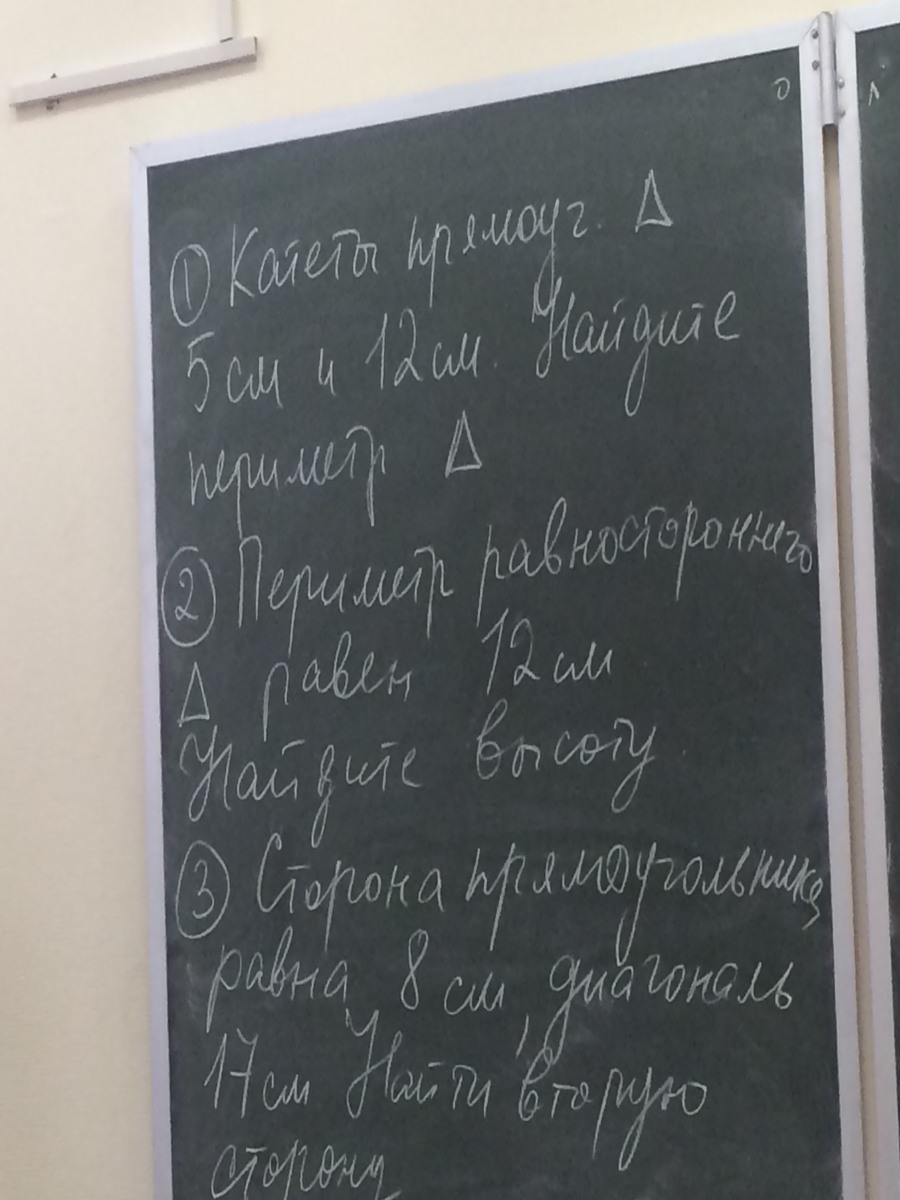 ① Катеты прямоуг. Δ
5см и 12см. Найдите
периметр Δ
② Периметр равностороннего
Δ равен 12см
Найдите высоту.
③ Сторона прямоугольника
равна 8 см, диагональ
17см Найти вторую
сторону